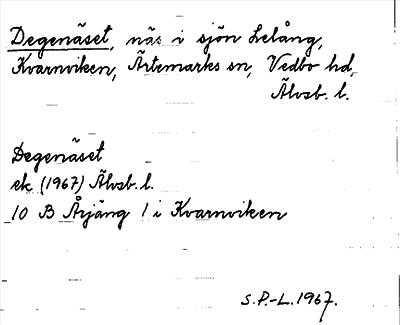 Degenäset, näs i sjön Lelång,
Kvarnviken, Ärtemarks sn, Vedbo hd,
Älvsb. l.
Degenäset
ek (1967) Älvsb. l.
10 B Årjäng 1 i Kvarnviken
S.P.-L. 1967.